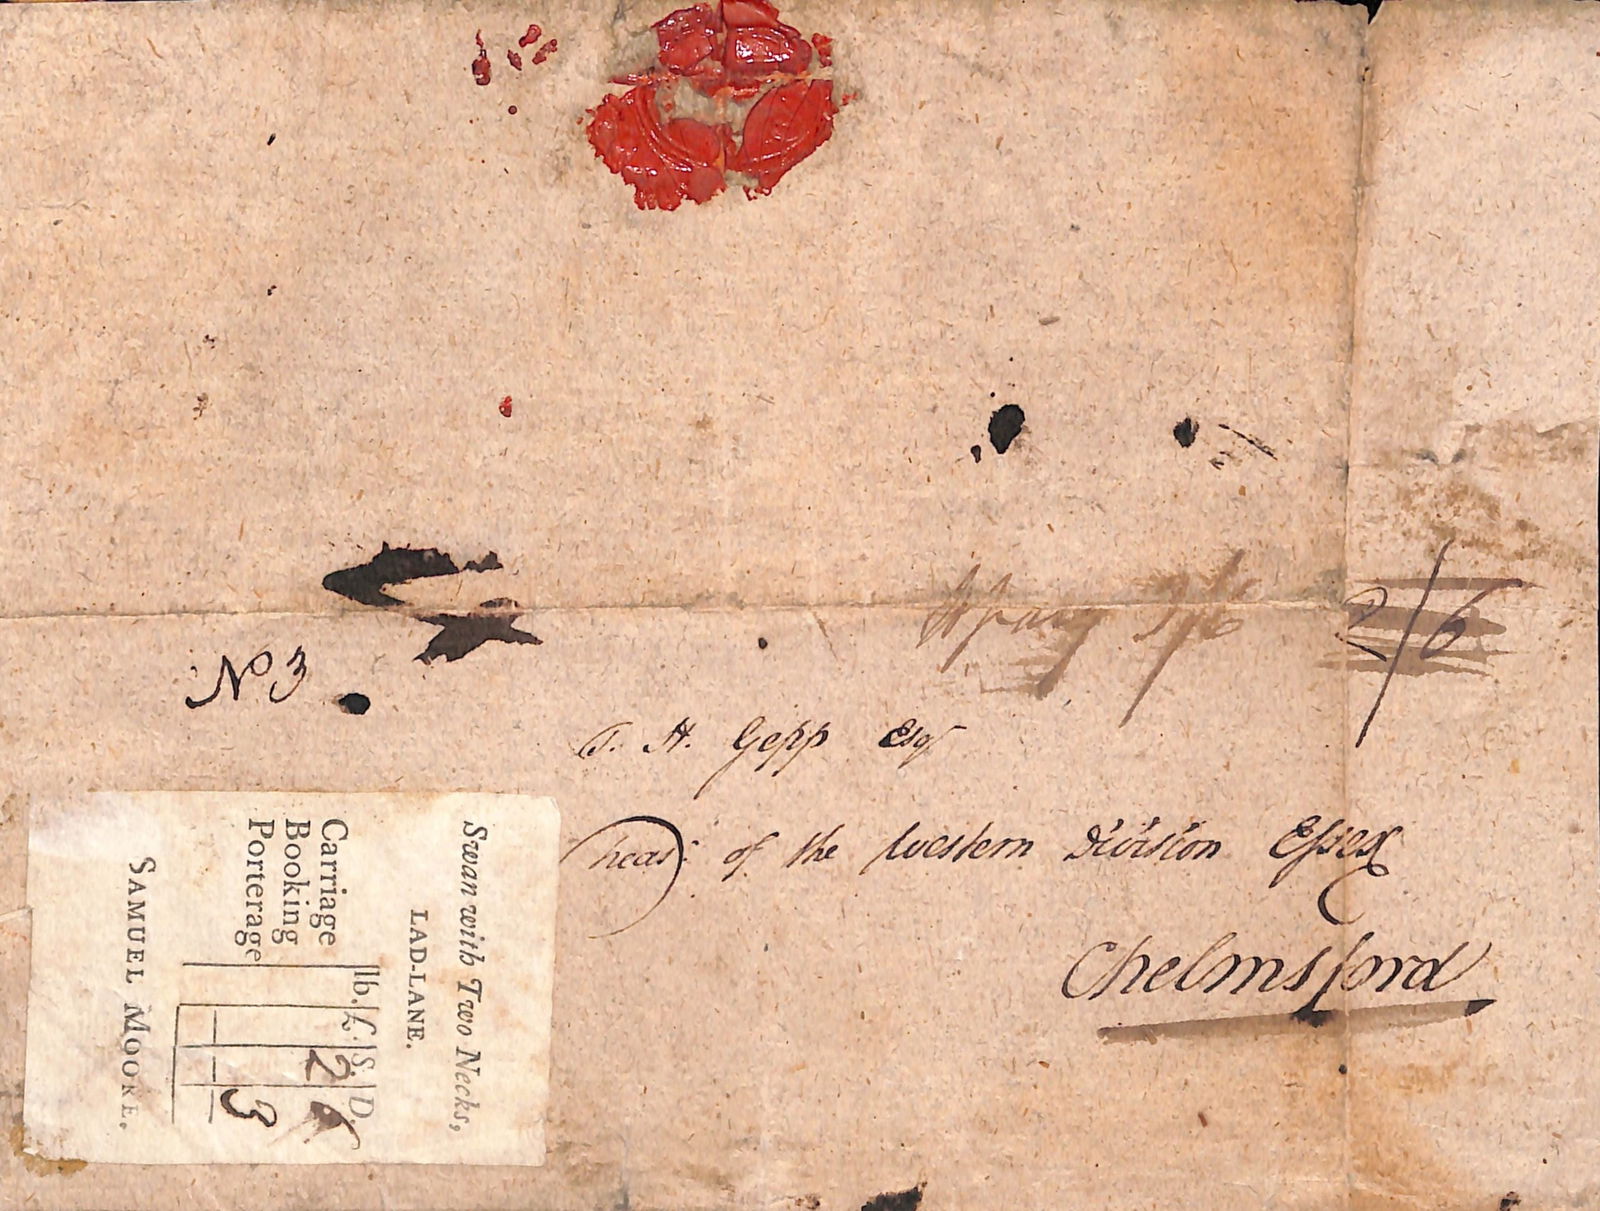 2/6
No 3
T. H. Gepp Esqr
Treasr of the Western Division Essex
Chelmsford
Swan with Two Necks,
LAD-LANE.
lb. £. S. D.
Carriage 2
Booking
Porterage 3
SAMUEL MOORE.